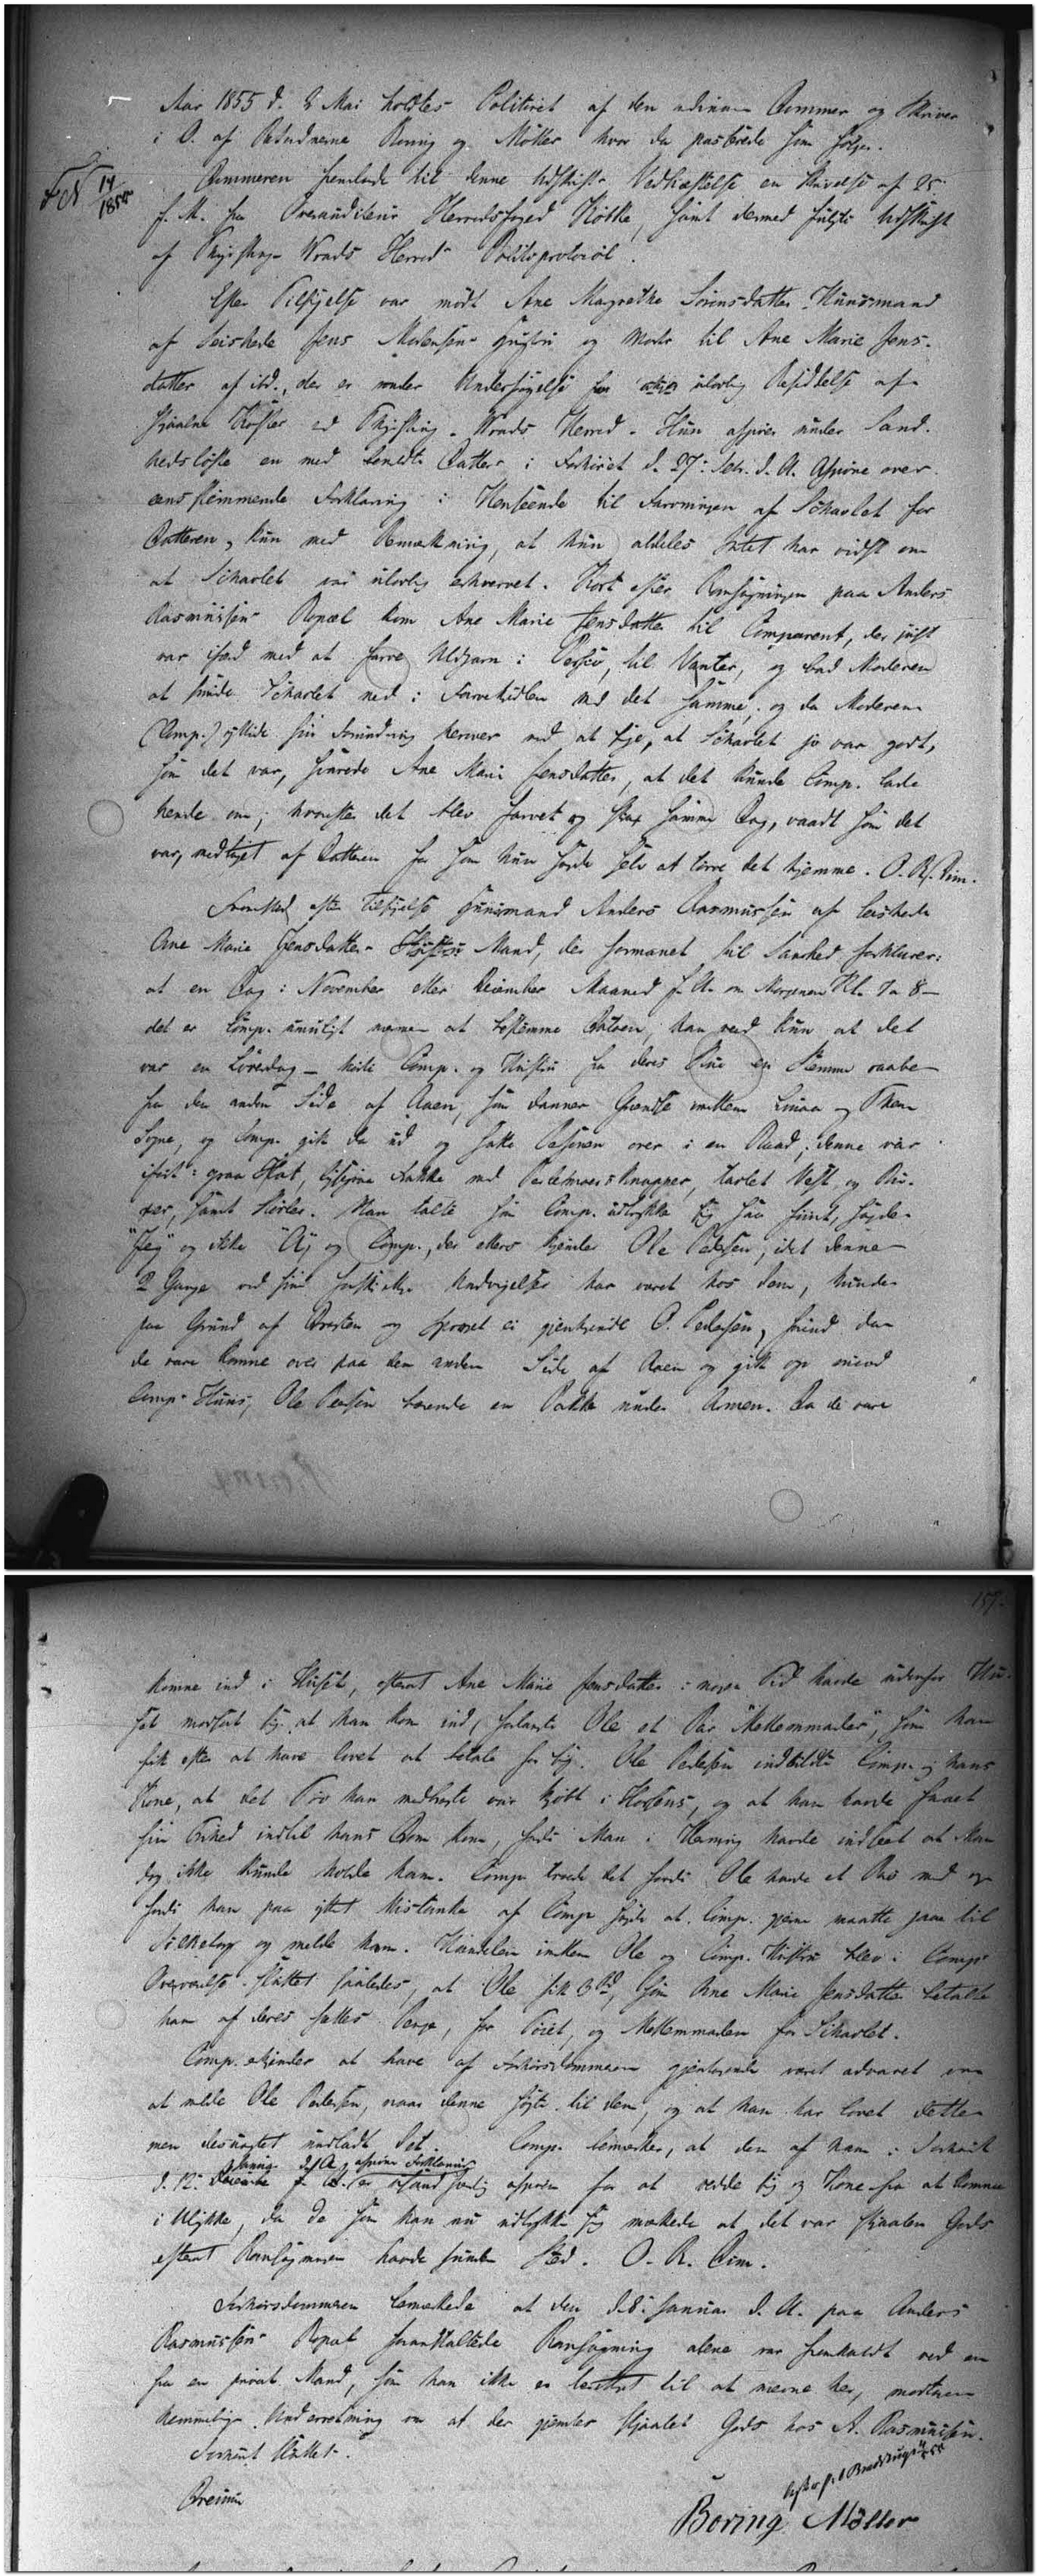 Aar 1855 d. 2 Mai holdtes Politiret af den ordinaire Dommer og Skriver
i O. af Vidnerne Boring og Möller hvor da passerede som følger.
F. N. 14/1855
Dommeren fremlagde til denne Udskrifts Vedhæftelse en Skrivelse af 25
f. M. fra Overauditeur Herredsfoged samt dermed fulgte Udskrift
af Vrads Herreds Politiprotocol.
Efter Tilsigelse var mødt Ane Magrethe Sörensdatter Huusmand
af Seishede Jens Mortensens Hustru og Moder til Ane Marie Jens-
datter af ibd., der er under Undersøgelse for ulovlig Besiddelse af
stjaalne Koster ved Vrads Herred. Hun afgiver under Sand-
hedsløfte en med Datter i Forhöret d. 27 Febr. d. A. afgivne over-
eensstemmende Forklaring i Henseende til Farvningen af Skiörtet for
Datteren, kun med Bemærkning, at hun aldeles Intet har vidst om
at var ulovlig erhvervet. Kort efter Ransagningen paa Anders
Rasmussens Bopæl kom Ane Marie Jensdatter til Comparent, der just
var ifærd med at farve Uldgarn i til Vanter, og bad Moderen
at putte ned i Farvekjedlen med det samme, og da Moderen
(Comp.) yttrede sin Forundring herover ved at sige, at jo var godt,
som det var, svarede Ane Marie Jensdatter, at det kunde Comp. lade
hende om; hvorefter det blev farvet og strax samme Dag, vaadt som det
var, medtaget af Datteren for som hun sagde selv at törre det hjemme. O. R. Dim.
Fremstod efter Tilsigelse Huusmand Anders Rasmussen af Seishede
Ane Marie Jensdatters Mand, der formanet til Sandhed forklarer:
at en Dag i November eller December Maaned f. A. om Morgenen Kl. 7 a 8 –
det er Comp. umuligt nærmere at bestemme Datoen, han veed kun at det
var en Löverdag – hørte Comp. og Hustru fra deres Stue en Stemme raabe
fra den anden Side af Aaen, som danner Grændse imellem Linaa og Them
Sogne, og Comp. gik da ud og satte Personen over i en Baad; denne var
iført graa Hat, lysegraa Frakke med Perlemoers Knapper, Vest og Bu-
xer, samt Støvler. Man talte som Comp. udtrykte sig saa fiint, sagde
"Jeg" og ikke "A" og Comp., der ellers kjender Ole Pedersen, idet denne
2 Gange ved sine forskjellige Undvigelser har været hos dem, kunde
paa Grund af Dragten og Sproget ei gjenkjende O. Pedersen, førend da
de vare komne over paa den anden Side af Aaen og gik op imod
Comp's Huus, Ole Pedersen bærende en Pakke under Armen. Da de vare
159.
komne ind i Huset, efterat Ane Marie Jensdatter i nogen Tid havde udenfor Hu-
set modsat sig at han kom ind, forlangte Ole et Par "Mellemmader", som han
fik efter at have lovet at betale for sig. Ole Pedersen indbildte Comp. og hans
Kone, at det Töi han medbragte var kjøbt i Horsens, og at han havde faaet
sin Frihed indtil hans Dom kom, fordi Man i Herning havde indseet at Man
dog ikke kunde holde ham. Comp. troede det fordi Ole havde et Pas med og
fordi han paa yttret Mistanke af Comp. sagde at Comp. gjerne maatte gaae til
Silkeborg og melde ham. Handelen imellem Ole og Comp. Hustru blev i Comp's
Overværelse sluttet saaledes, at Ole fik 3 rd, som Ane Marie Jensdatter betalte
ham af deres fælles Penge, for Töiet, og Mellemmaden for
Comp. erkjender at have af Forhörsdommeren gjentagende været advaret om
at melde Ole Pedersen, naar denne søgte til dem, og at han har lovet dette
men desuagtet undladt det. Comp. bemærker, at den af ham i Forhöret
d. 12 Januar d. A. afgivne Forklaring er usandfærdig afgiven for at redde sig og Kone fra at komme
i Ulykke, da de som han nu udtrykte sig mærkede at det var stjaalen Gods
efterat Ransagningen havde funden Sted. O. R. Dim.
Forhörsdommeren bemærkede at den d. 8 Januar d. A. paa Anders
Rasmussens Bopæl foranstaltede Ransagning alene var fremkaldt ved en
fra en privat Mand, som han ikke er berettiget til at nævne her, modtagen
hemmelig Underretning om at der gjemtes stjaalet Gods hos A. Rasmussen.
Forhöret sluttet.
Boring Möller